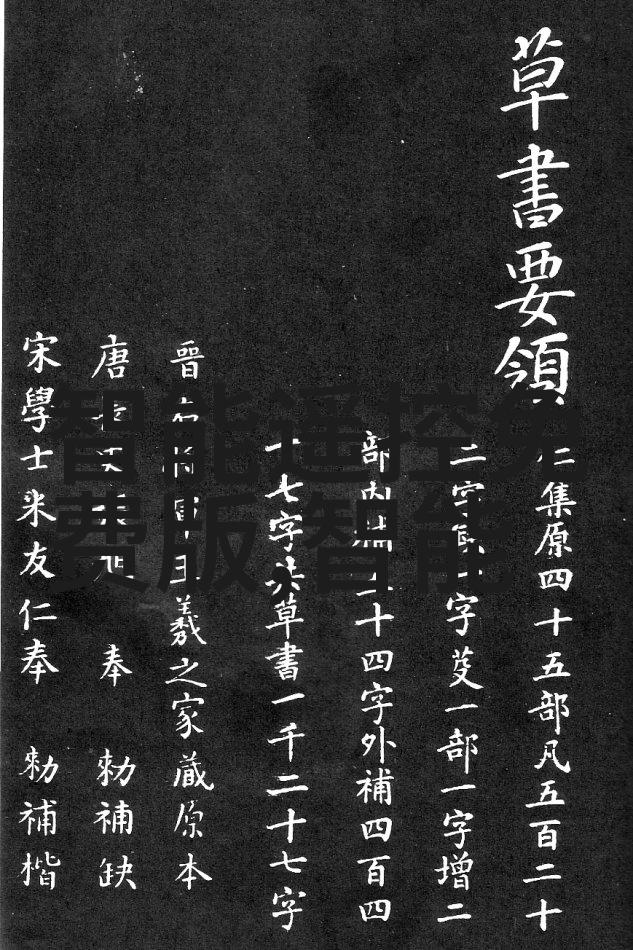 草書要領
仁集原四十五部凡五百二十
二字一字芟一部一字增二
部内二十四字外補四百四
十七字共草書一千二十七字
晉右將軍王羲之家藏原本
唐長史張旭 奉 勑補缺
宋學士米友仁奉 勑補楷
智能遥控免
费版智能